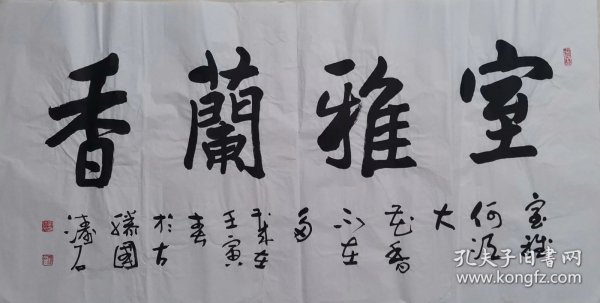 室雅蘭香
室雅
何須
大
花香
不在
多
歲在
壬寅
春
於古
滕國
濤石
孔夫子旧书网
www.kongfz.com